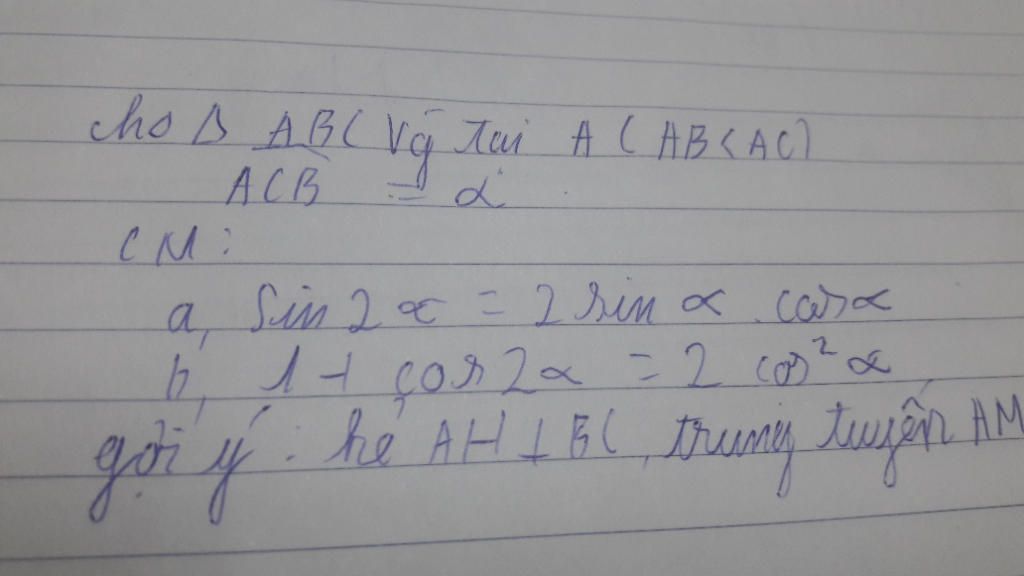 cho Δ ABC Vg tại A ( AB < AC)
ACB = α
CM :
a, Sin 2 α = 2 sin α . cosα
b, 1 + cos 2α = 2 cos² α
gợi ý : kẻ AH ⊥ BC , trung tuyến AM